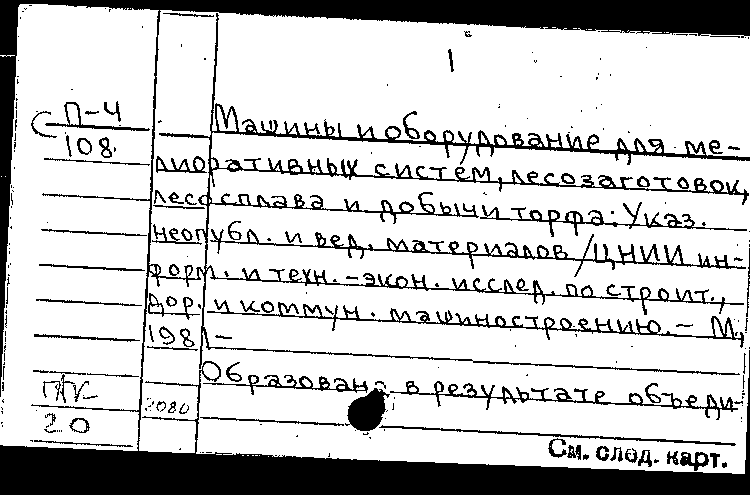 1
П-4
108.
Машины и оборудование для ме-
лиоративных систем, лесозаготовок,
лесосплава и добычи торфа: Указ.
неопубл. и вед. материалов / ЦНИИ ин-
форм. и техн.-экон. исслед. по строит.,
дор. и коммун. машиностроению. - М.,
1981-
Образована в результате объеди-
2080
20
См. след. карт.